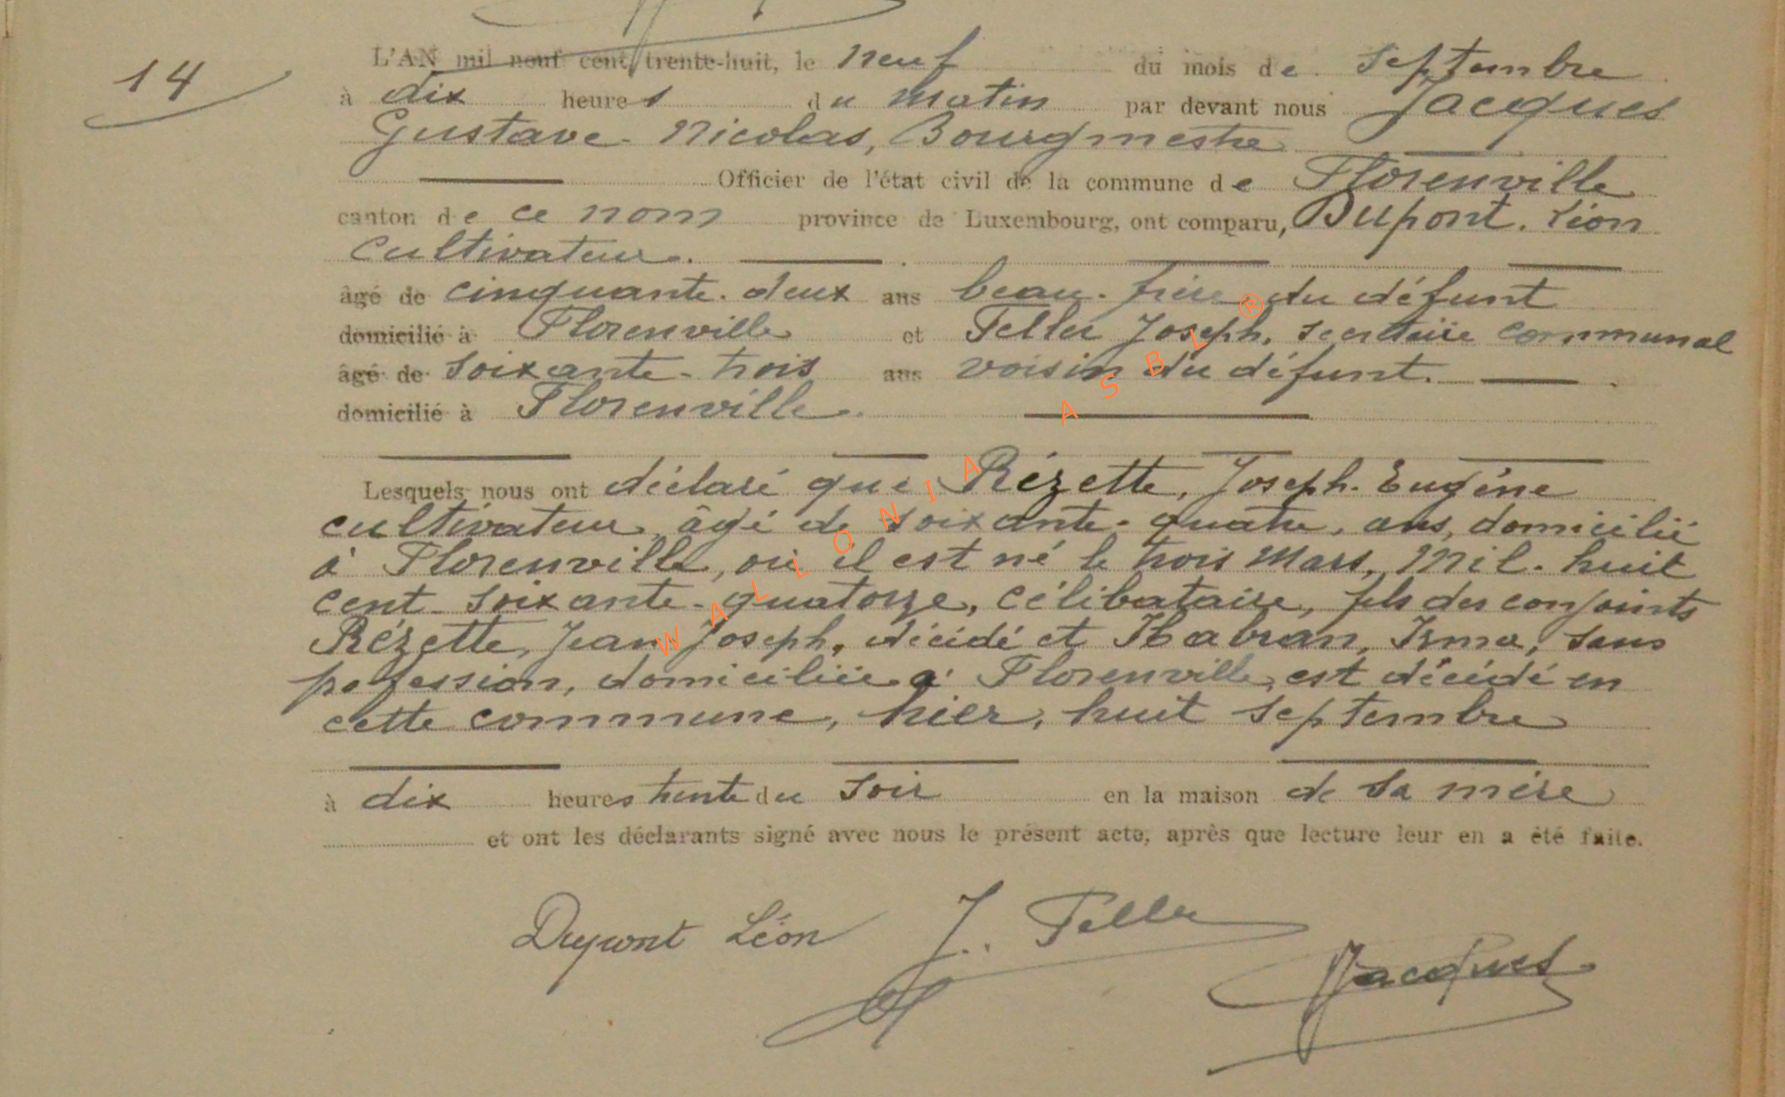 14
L'AN mil neuf cent trente-huit, le neuf du mois de Septembre
à dix heures du matin par devant nous Jacques
Gustave Nicolas, Bourgmestre
Officier de l'état civil de la commune de Florenville
canton de ce nom province de Luxembourg, ont comparu, Dupont. Léon
Cultivateur.
âgé de cinquante-deux ans beau-frère du défunt
domicilié à Florenville et Feller Joseph, secrétaire communal
âgé de soixante-trois ans voisin du défunt.
domicilié à Florenville.
Lesquels nous ont déclaré que Rézette, Joseph-Eugène
cultivateur, âgé de soixante-quatre, ans, domicilié
à Florenville, où il est né le trois mars, mil-huit
cent-soixante-quatorze, célibataire, fils des conjoints
Rézette, Jean Joseph, décédé et Habran, Irma, sans
profession, domiciliée à Florenville, est décédé en
cette commune, hier, huit septembre
à dix heures trente du soir en la maison de sa mère
et ont les déclarants signé avec nous le présent acte, après que lecture leur en a été faite.
Dupont Léon J. Feller
Jacques
WALLONIA ASBL ®